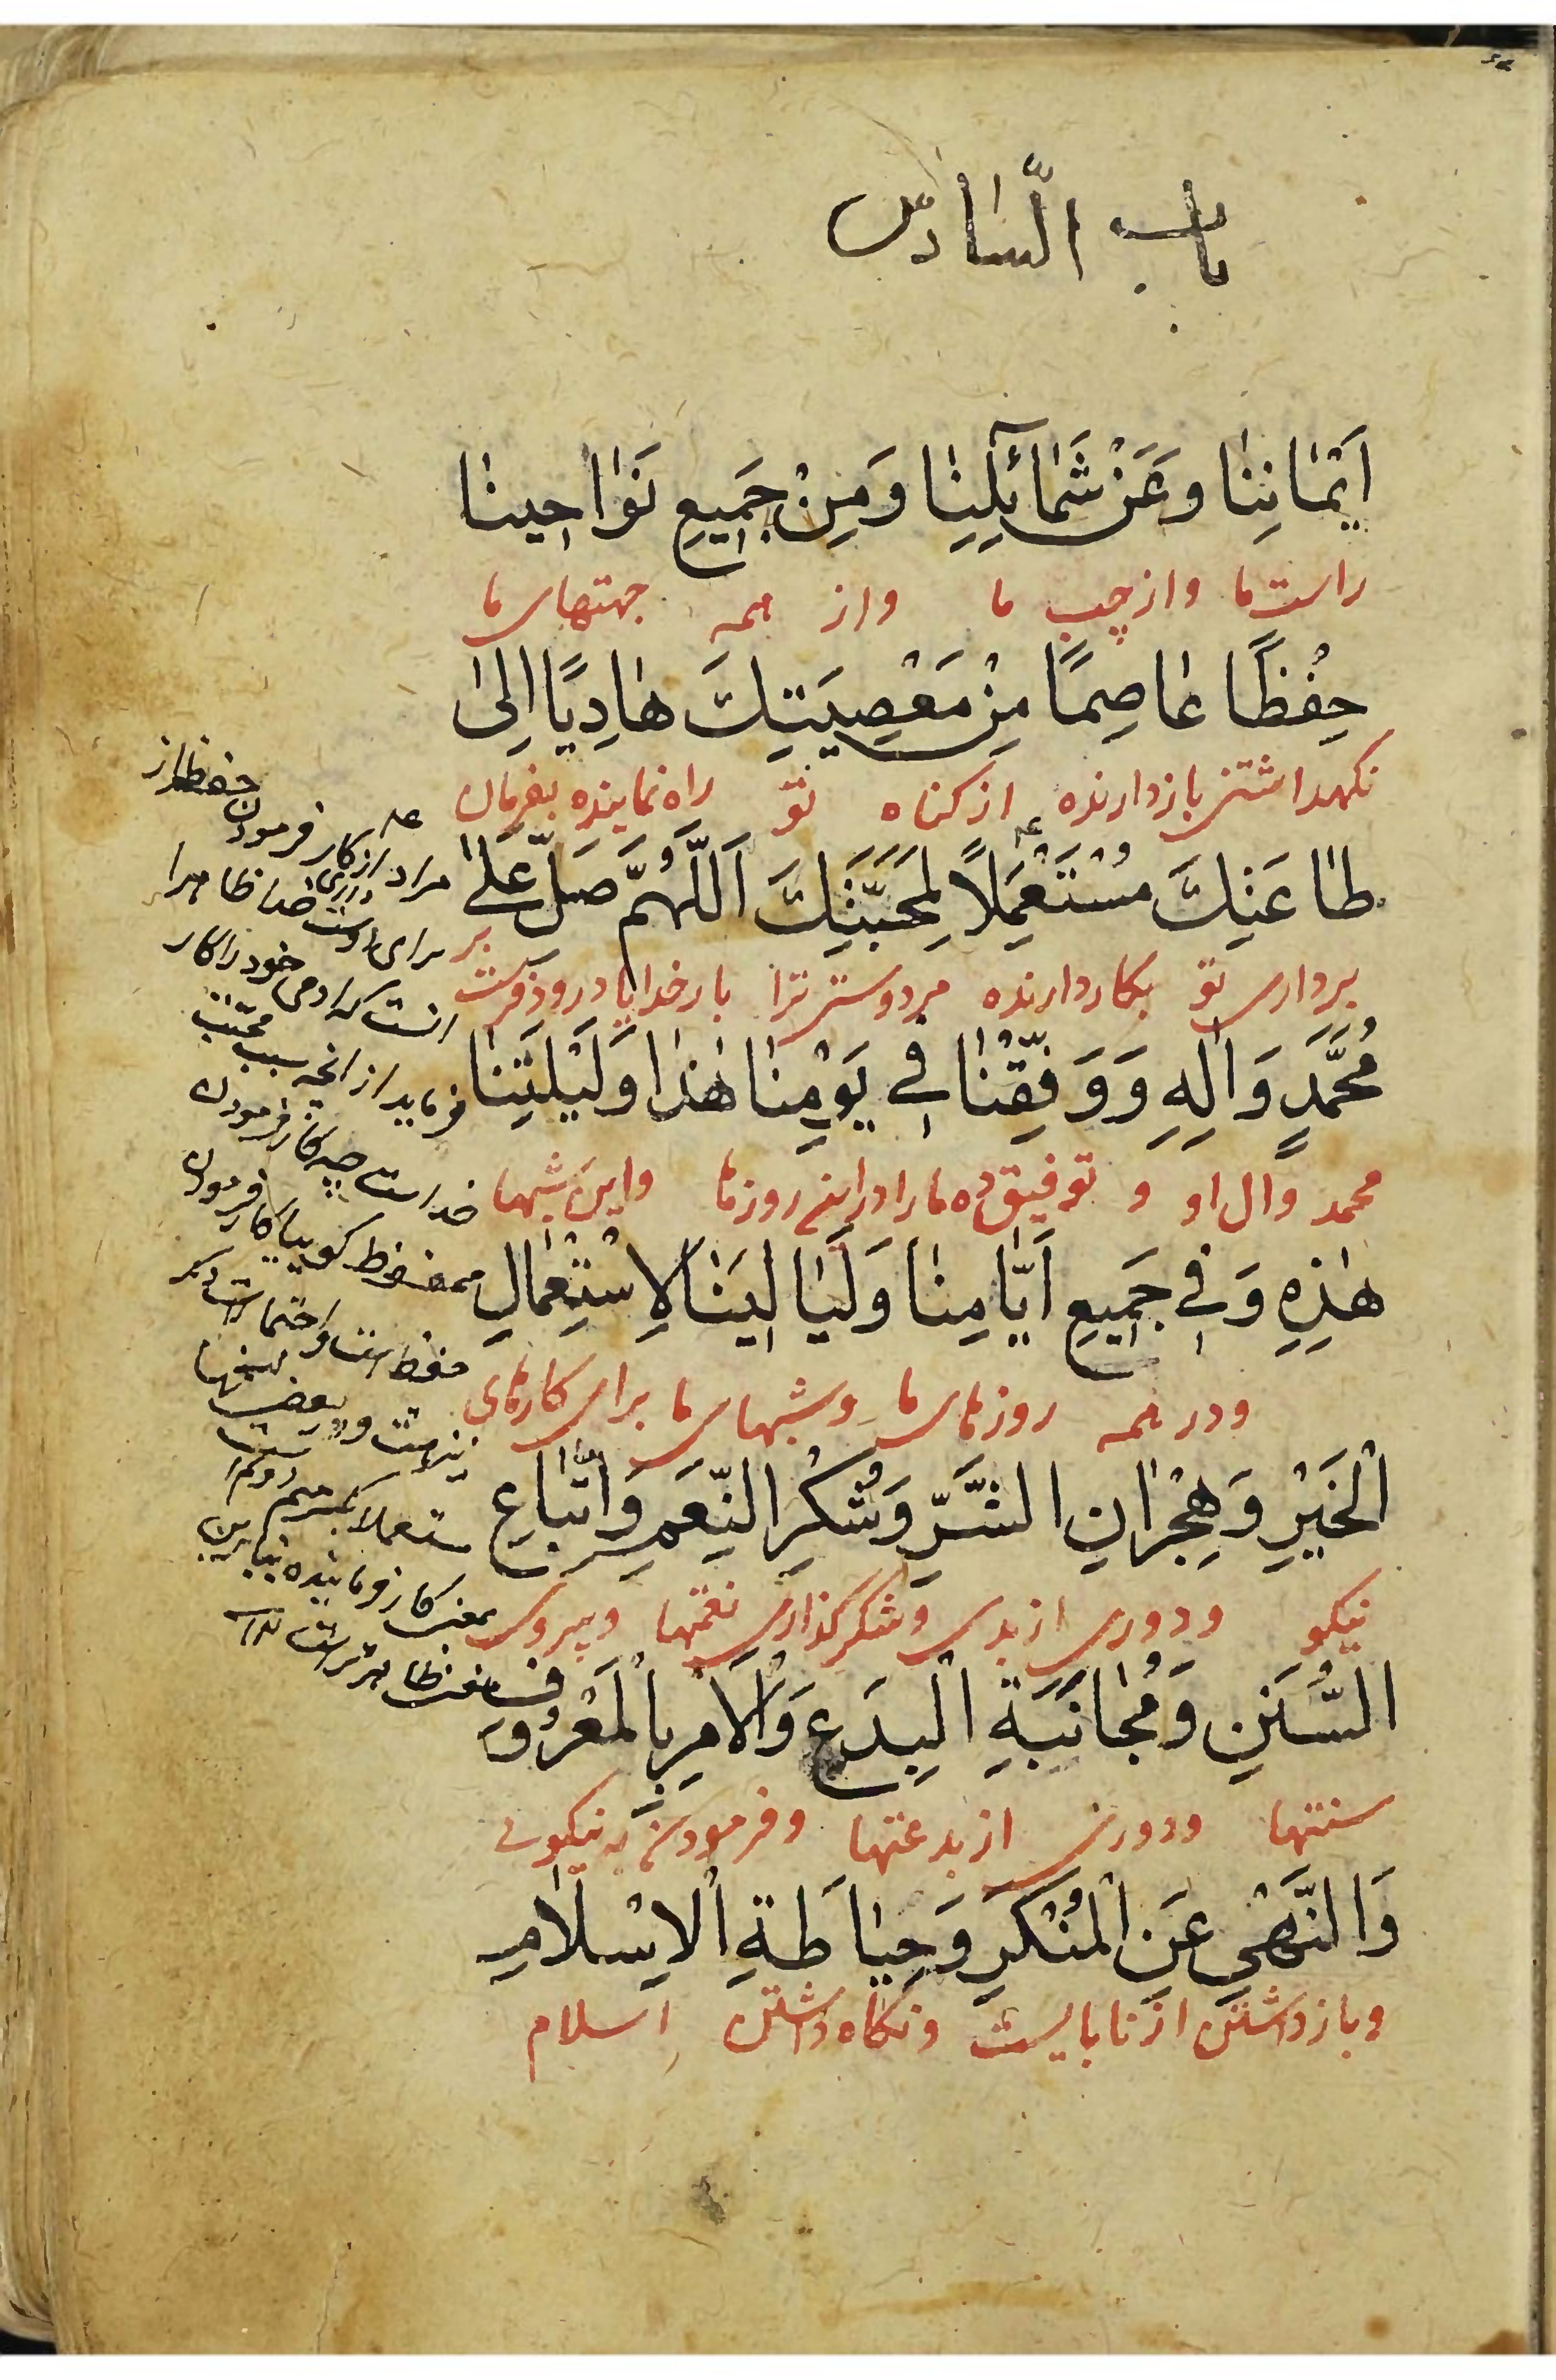 باب السّادس
اَيْمٰانِنٰا وَعَنْ شَمٰائِلِنٰا وَمِنْ جَمِيعِ نَوٰاحِينٰا
راست ما و از چپ ما و از همه جهتهای ما
حِفْظًا عٰاصِمًا مِنْ مَعْصِيَتِكَ هٰادِيًا اِلىٰ
نكهداشتنی بازدارنده از كناه تو راه نماینده بفرمان
طٰاعَتِكَ مُسْتَعْمِلًا لِمَحَبَّتِكَ اَللّٰهُمَّ صَلِّ عَلىٰ
برداری تو بكار دارنده مر دوستی ترا بار خدایا درود فرست بر
مُحَمَّدٍ وَاٰلِهِ وَوَفِّقْنٰا فِي يَوْمِنٰا هٰذٰا وَلَيْلَتِنٰا
محمد و ال او و توفیق ده ما را در این روز ما و این شبها
هٰذِهِ وَفِي جَمِيعِ اَيّٰامِنٰا وَلَيٰالِينٰا لِاسْتِعْمٰالِ
و در همه روزهای ما و شبهای ما برای كارهای
الْخَيْرِ وَهِجْرٰانِ الشَّرِّ وَشُكْرِ النِّعَمِ وَاتِّبٰاعِ
نیكو و دوری از بدی و شكر كذاری نعمتها و پیروی
السُّنَنِ وَمُجٰانَبَةِ الْبِدَعِ وَالْاَمْرِ بِالْمَعْرُوفِ
سنتها و دوری از بدعتها و فرمودن به نیكویی
وَالنَّهْيِ عَنِ الْمُنْكَرِ وَحِيٰاطَةِ الْاِسْلٰامِ
و بازداشتن از نابایست و نكاه داشتن اسلام
مراد از كار فرمودن حفظ از
برای اوست
انست كه ادمی خود را كار
فرماید از انچه سبب محبّت
خداست چه كار فرمودن
محفوظ كویا كار فرمودن
حفظ است و احتمالات دیكر
نیز هست و در بعضی نسخها
مستعملا بكسر میم دوم است
بمعنی كار فرماینده بنابراین